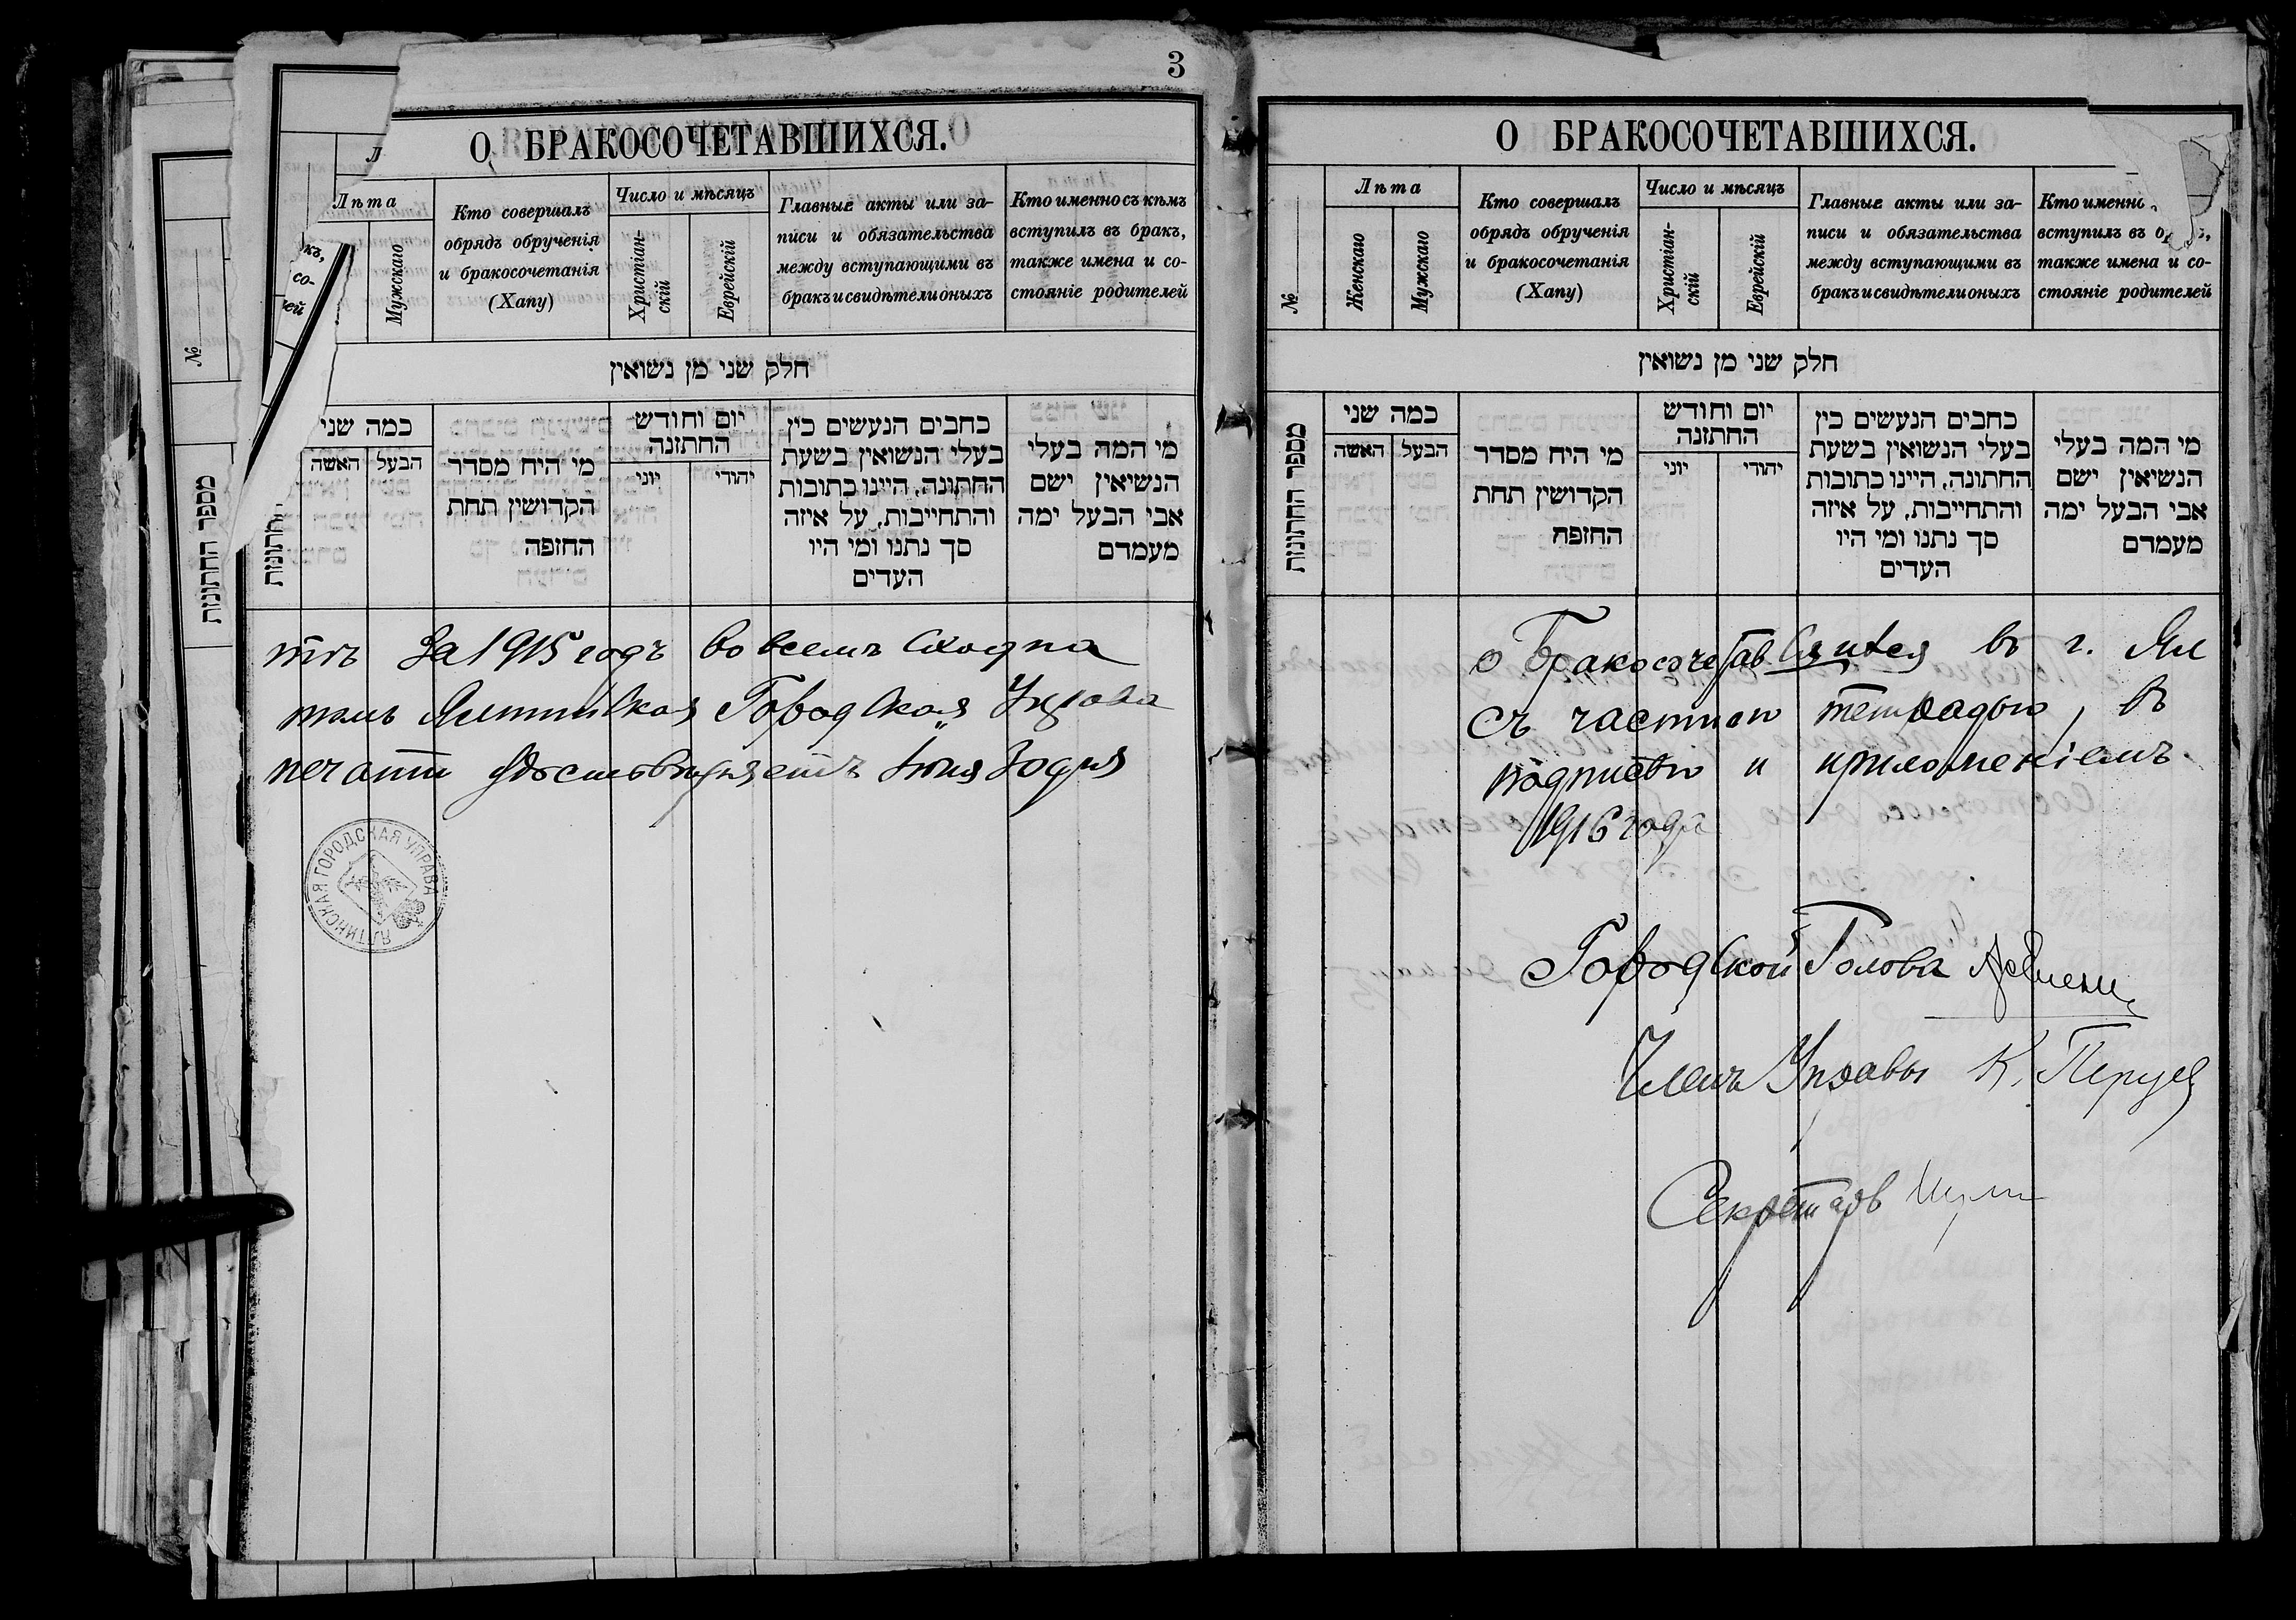 3
О БРАКОСОЧЕТАВШИХСЯ.
Лѣта
Мужскаго
Кто совершалъ
обрядъ обрученія
и бракосочетанія
(Хапу)
Число и мѣсяцъ
Христіан-
скій
Еврейскій
Главные акты или за-
писи и обязательства
между вступающими въ
бракъ и свидѣтели оныхъ
Кто именно съ кѣмъ
вступилъ въ бракъ,
также имена и со-
стояніе родителей
къ,
со-
ей
№
חלק שני מן נשואין
מספר החתונות
כמה שני
האשה
הבעל
מי היה מסדר
הקדושין תחת
החופה
יום וחודש
החתונה
יוני
יהודי
כתבים הנעשים בין
בעלי הנשואין בשעת
החתונה, היינו כתובות
והתחייבות, על איזה
סך נתנו ומי היו
העדים
מי המה בעלי
הנשיאין ישם
אבי הבעל ימה
מעמדם
за 1915 годъ во всемъ сходна
Ялтинская Городская Управа
печати удостовѣряетъ Іюня
ЯЛТИНСКАЯ ГОРОДСКАЯ УПРАВА
О БРАКОСОЧЕТАВШИХСЯ.
№
Лѣта
Женскаго
Мужскаго
Кто совершалъ
обрядъ обрученія
и бракосочетанія
(Хапу)
Число и мѣсяцъ
Христіан-
скій
Еврейскій
Главные акты или за-
писи и обязательства
между вступающими въ
бракъ и свидѣтели оныхъ
Кто именно
вступилъ въ
также имена и со-
стояніе родителей
חלק שני מן נשואין
מספר החתונות
כמה שני
האשה
הבעל
מי היה מסדר
הקדושין תחת
החופה
יום וחודש
החתונה
יוני
יהודי
כתבים הנעשים בין
בעלי הנשואין בשעת
החתונה, היינו כתובות
והתחייבות, על איזה
סך נתנו ומי היו
העדים
מי המה בעלי
הנשיאין ישם
אבי הבעל ימה
מעמדם
о бракосочетав въ г. Ял
съ частию тетрадью, въ
подписью и приложеніемъ
1916 года
Городской Голова
Членъ Управы К.
Секретарь